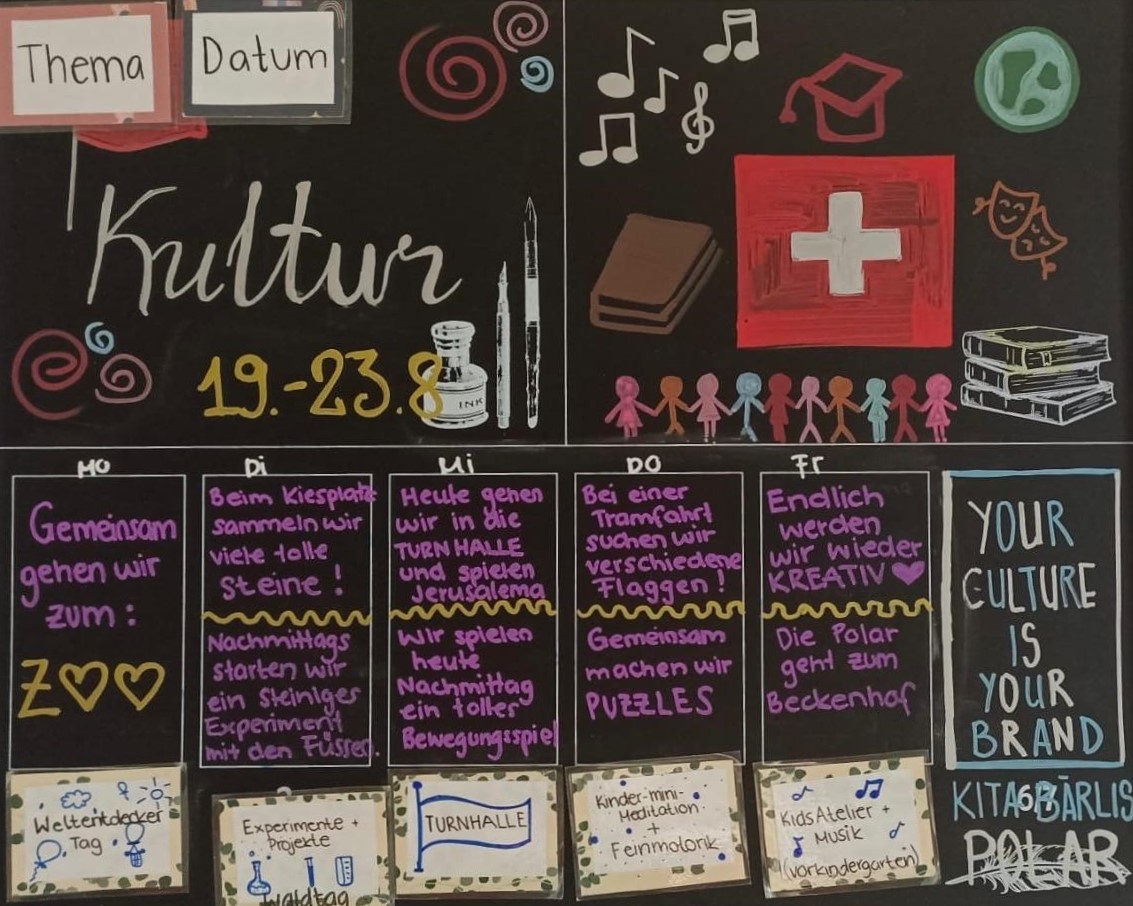 Thema
Datum
Kultur
19.-23.8
INK
MO
Gemeinsam
gehen wir
zum:
Z♡♡
Weltentdecker
Tag
Di
Beim Kiesplatz
sammeln wir
viele tolle
Steine!
Nachmittags
starten wir
ein Steiniges
Experiment
mit den Füssen.
Experimente +
Projekte
Waldtag
Mi
Heute gehen
wir in die
TURNHALLE
und spielen
Jerusalema
Wir spielen
heute
Nachmittag
ein toller
Bewegungsspiel
TURNHALLE
DO
Bei einer
Tramfahrt
suchen wir
verschiedene
Flaggen!
Gemeinsam
machen wir
PUZZLES
Kinder-mini-
Meditation
+
Feinmotorik
Fr
Endlich
werden
wir wieder
KREATIV ♥
Die Polar
geht zum
Beckenhof
Kids Atelier +
Musik
(Vorkindergarten)
YOUR
CULTURE
IS
YOUR
BRAND
KITA BÄRLIS
POLAR